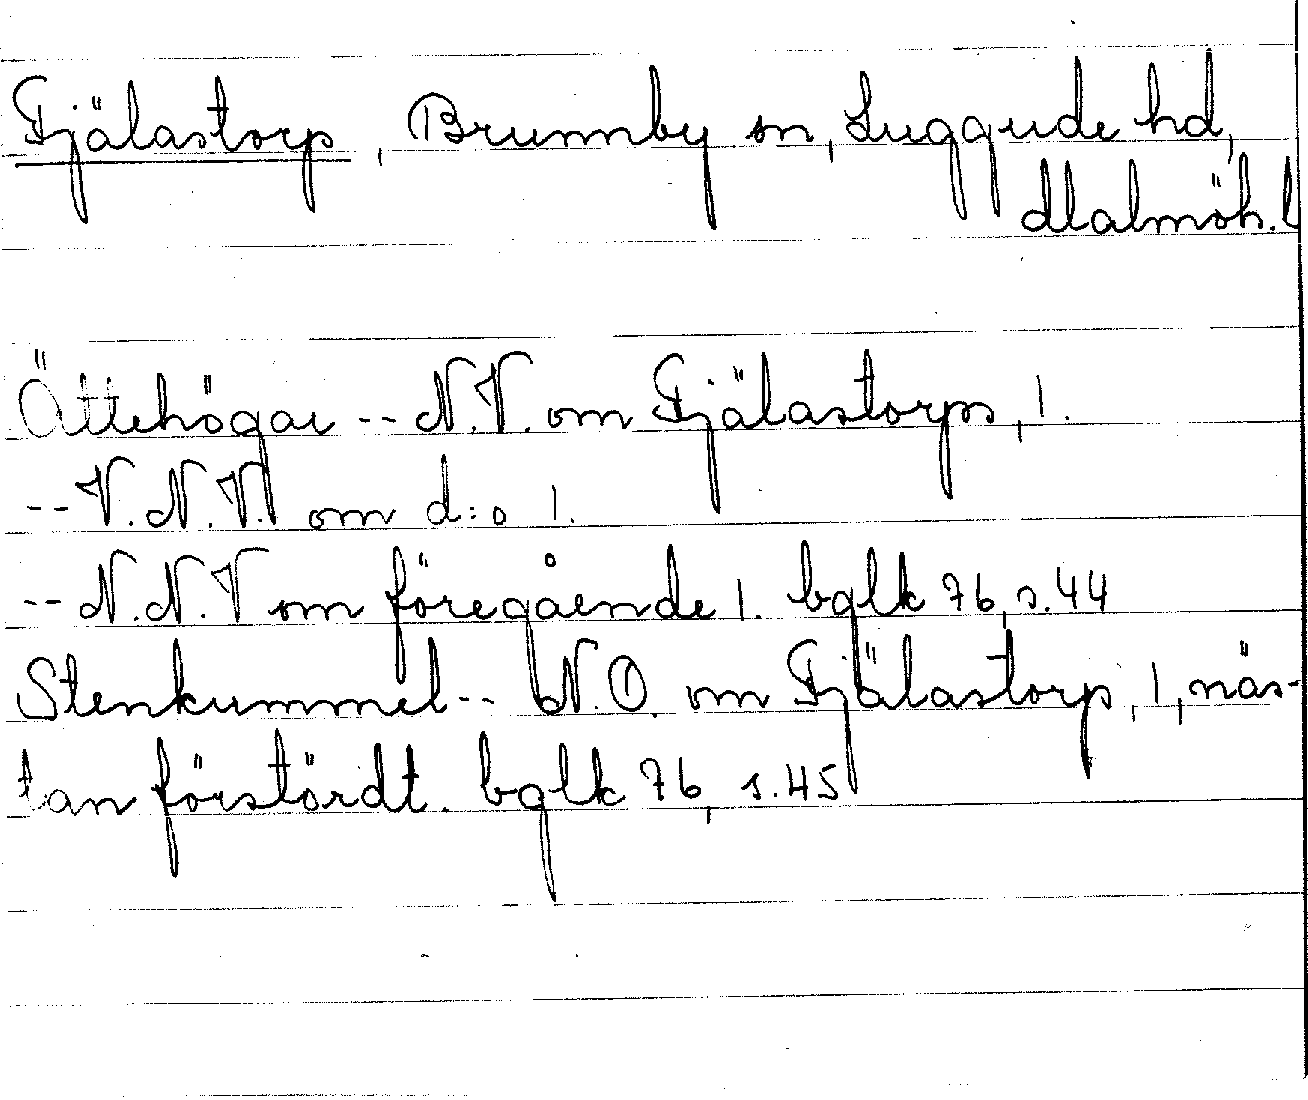 Fjälastorp, Brunnby sn, Luggude hd,
Malmöh. l
Ättehögar -- N.V. om Fjälastorps, 1.
-- V.N.V. om d:o 1.
-- N.N.V om föregående 1. bglk 76, s.44
Stenkummel -- N.O. om Fjälastorp, 1, näs-
tan förstördt. bglk 76, s.45